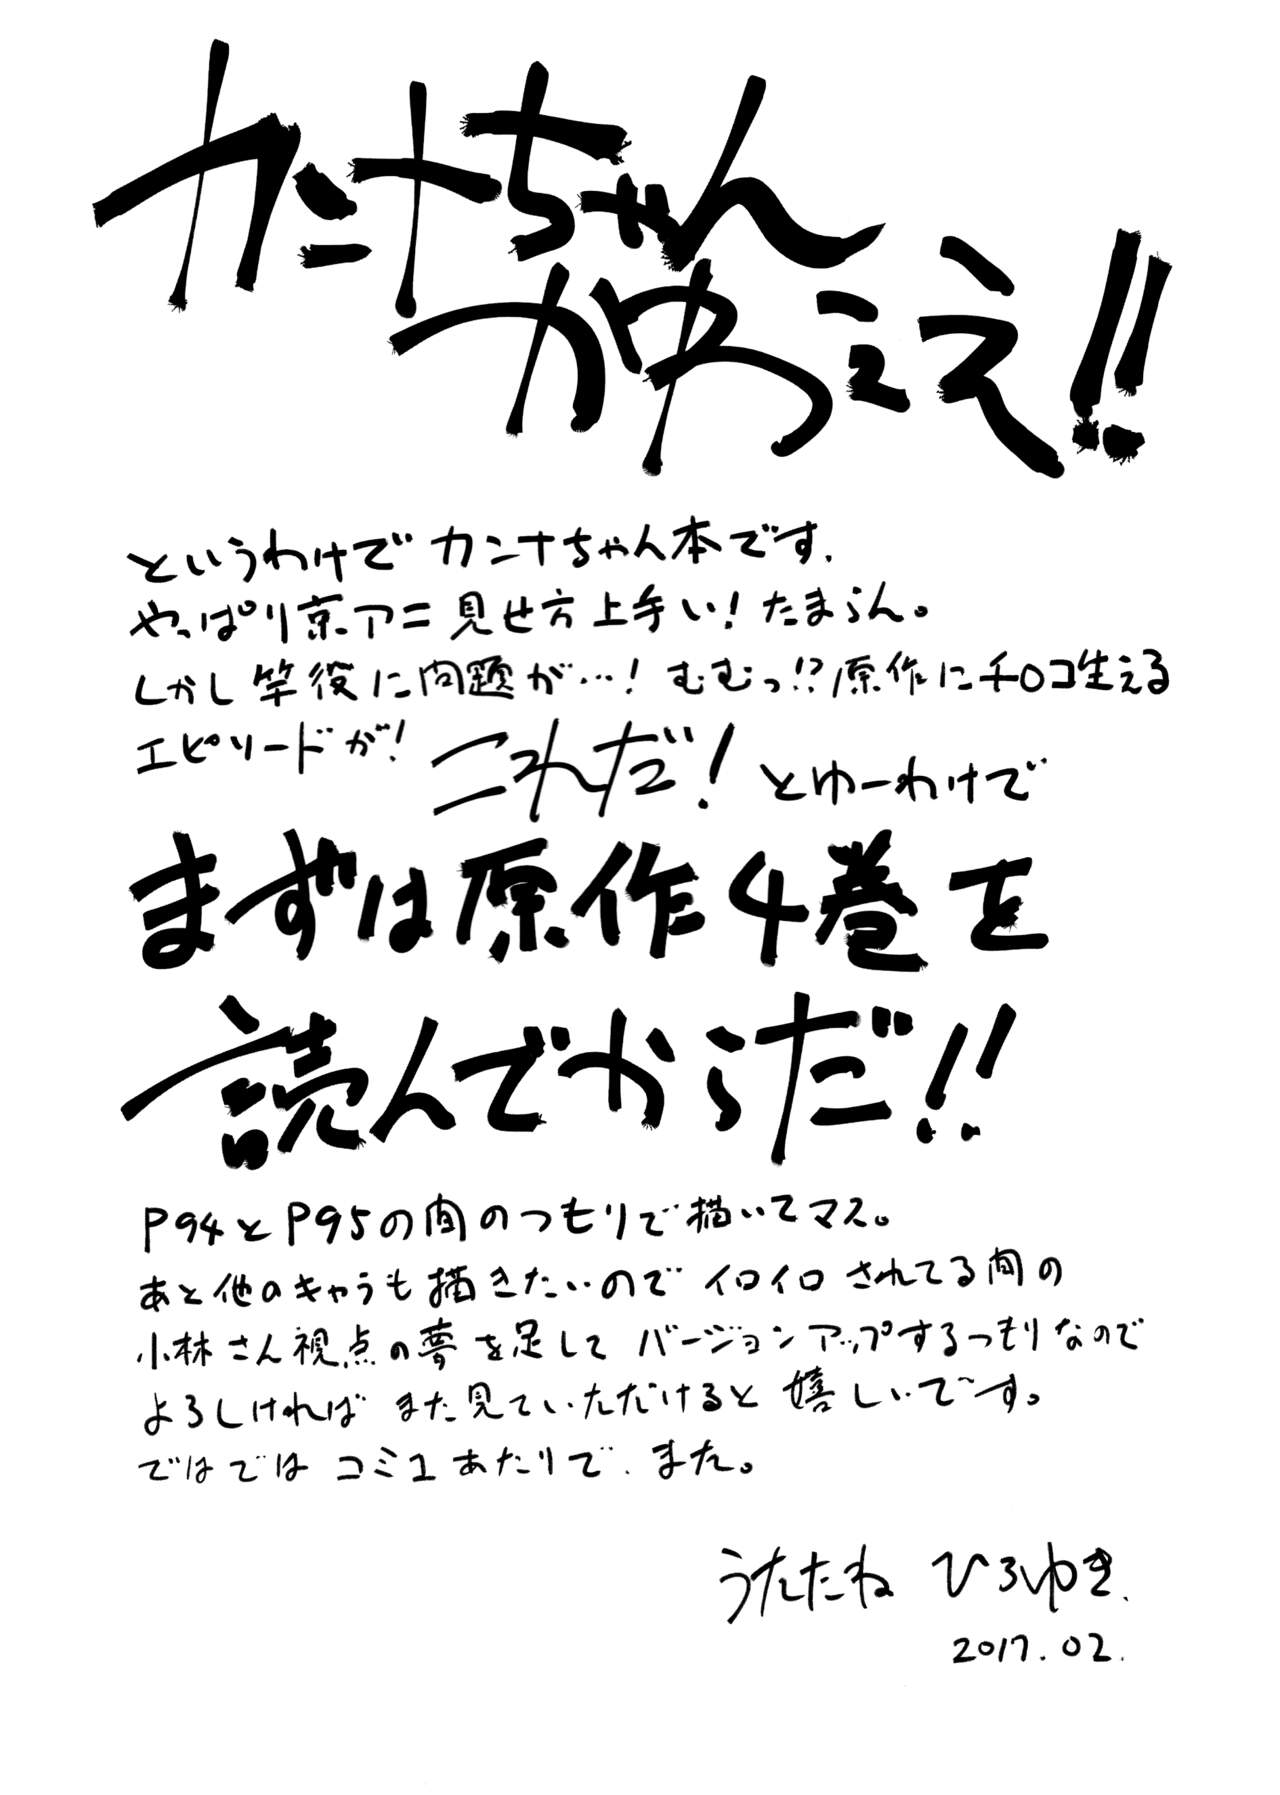 カンナちゃん
かわぇえ!!
というわけで カンナちゃん本です.
やっぱり京アニ 見せ方上手い! たまらん。
しかし 竿役に問題が…! むむっ!?原作にチロコ生える
エピソードが! これだ! とゆーわけで
まずは原作4巻を
読んでからだ!!
P94とP95の間のつもりで描いてマス。
あと他のキャラも描きたいので イロイロ されてる間の
小林さん視点の夢を足して バージョンアップするつもりなので
よろしければ また見ていただけると 嬉しいで〜す。
ではでは コミ1あたりで. また。
うたたね ひろゆき.
2017.02.